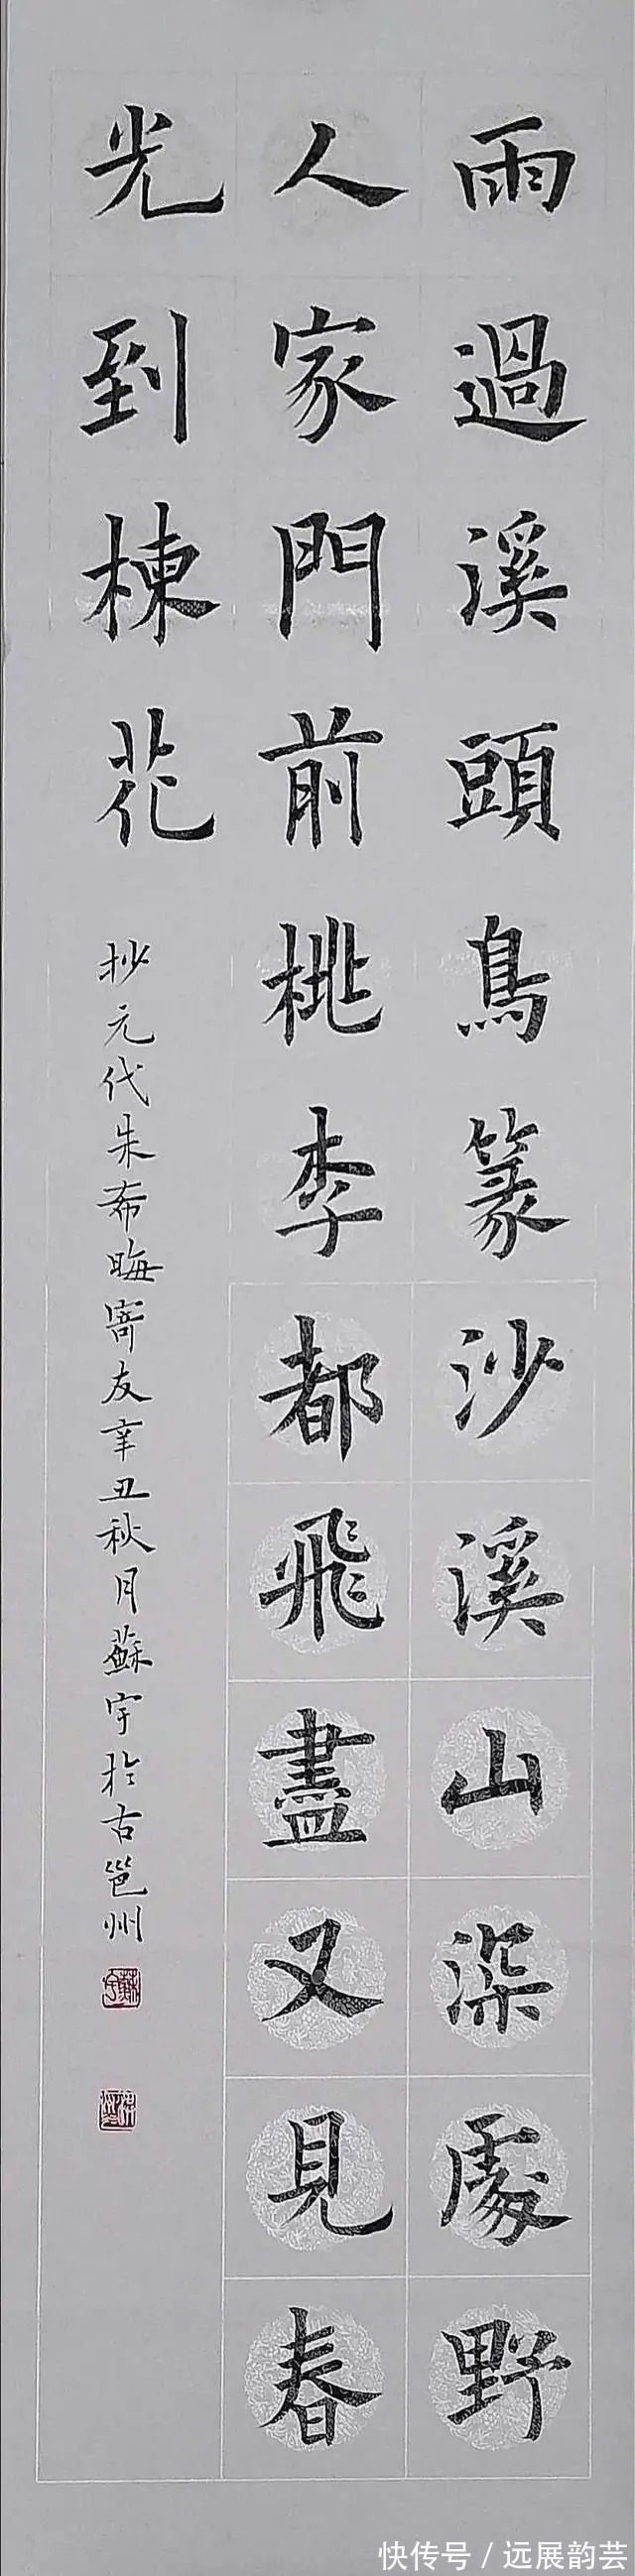 雨過溪頭鳥篆沙溪山深處野
人家門前桃李都飛盡又見春
光到楝花
抄元代朱希晦寄友辛丑秋月蘇宇於古邕州
快传号/远展韵芸